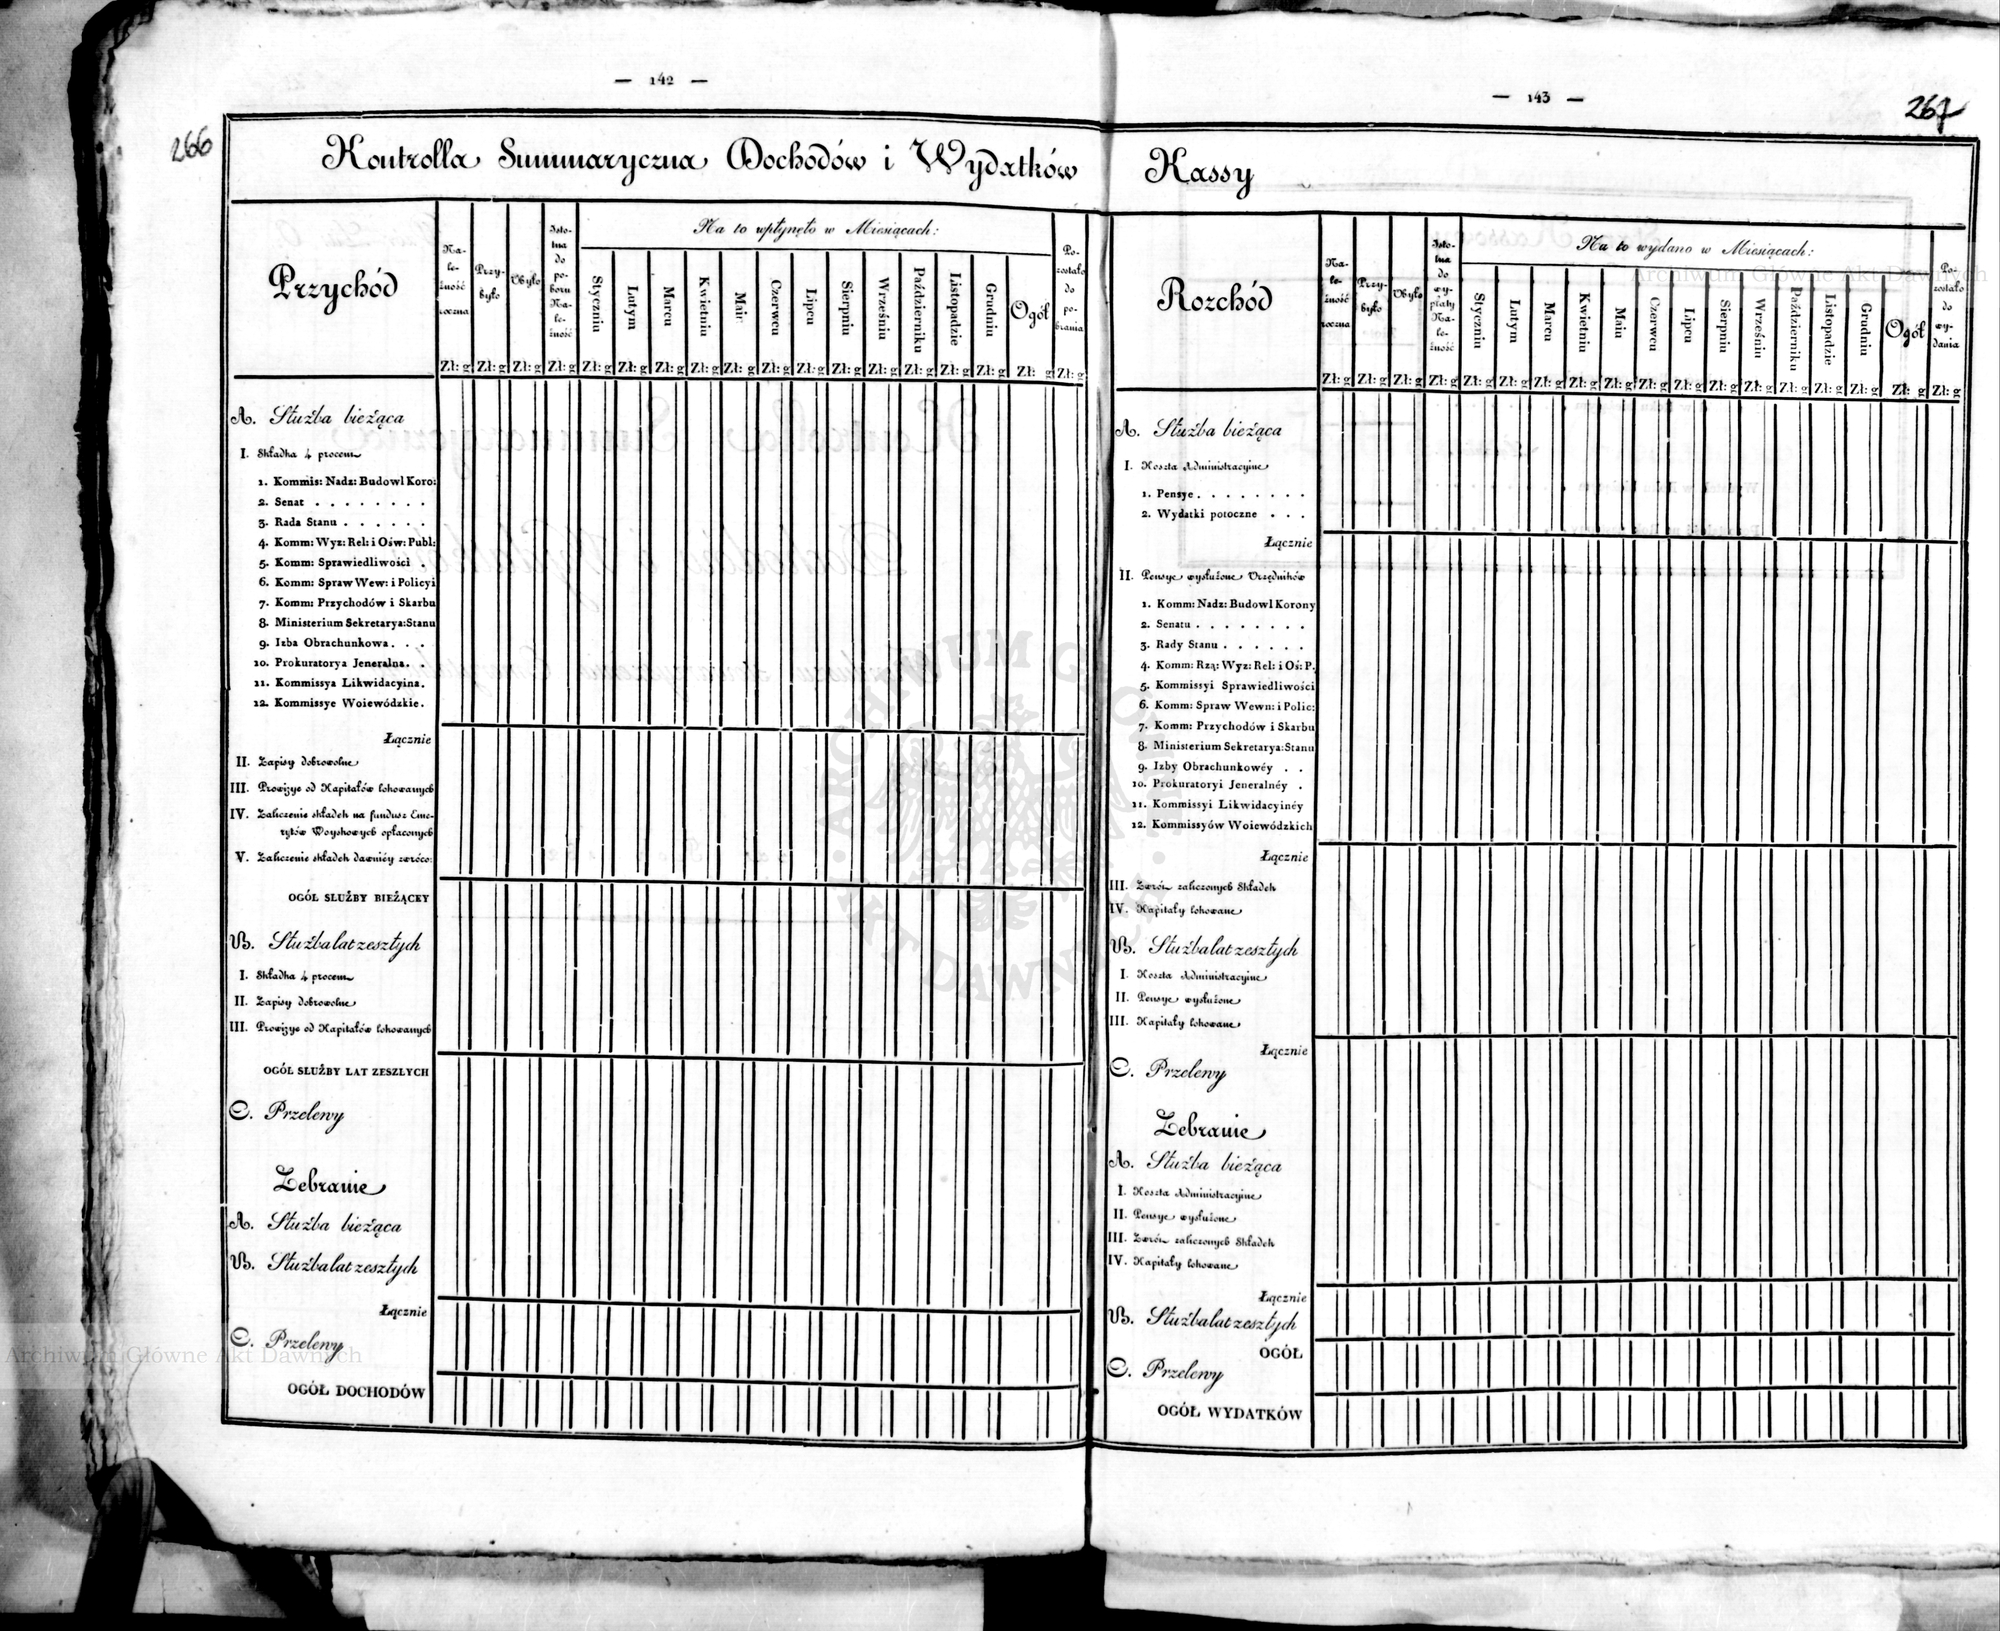 — 142 —
266
Kontrolla Summaryczna Dochodów i Wydatków
Przychód
Na-
le-
żność
roczna
Przy-
było
Ubyło
Isto-
tna
do
po-
boru
Na-
le-
żność
Na to wpłynęło w Miesiącach:
Styczniu
Lutym
Marcu
Kwietniu
Mai
Czerwcu
Lipcu
Sierpniu
Wrześniu
Październiku
Listopadzie
Grudniu
Ogół
Po-
zostało
do
po-
brania
Zł: g Zł: g Zł: g Zł: g Zł: g Zł: g Zł: g Zł: g Zł: g Zł: g Zł: g Zł: g Zł: g Zł: g Zł: g Zł: g Zł: g Zł: g
A. Służba bieżąca
I. Składka 4 procen
1. Kommis: Nadz: Budowl Koro:
2. Senat . . . . . . . .
3. Rada Stanu . . . . . .
4. Komm: Wyz: Rel: i Ośw: Publ:
5. Komm: Sprawiedliwości .
6. Komm: Spraw Wew: i Policyi
7. Komm: Przychodów i Skarbu
8. Ministerium Sekretarya: Stanu
9. Izba Obrachunkowa . . .
10. Prokuratorya Jeneralna . .
11. Kommissya Likwidacyina .
12. Kommissye Woiewódzkie .
Łącznie
II. Zapisy dobrowolne
III. Prowizye od Kapitałów lokowanych
IV. Zaliczenie składek na fundusz Eme-
rytów Woyskowych opłaconych
V. Zaliczenie składek dawniéy zwróco:
OGÓL SLUŻBY BIEŻĄCEY
B. Służba lat zeszłych
I. Składka 4 procen
II. Zapisy dobrowolne
III. Prowizye od Kapitałów lokowanych
OGÓL SLUŻBY LAT ZESZLYCH
C. Przelewy
Zebranie
A. Służba bieżąca
B. Służba lat zeszłych
Łącznie
C. Przelewy
OGÓŁ DOCHODÓW
— 143 —
267
Kassy
Rozchód
Na-
le-
żność
roczna
Przy-
było
Ubyło
Isto-
tna
do
wy-
płaty
Na-
le-
żność
Na to wydano w Miesiącach:
Styczniu
Lutym
Marcu
Kwietniu
Maiu
Czerwcu
Lipcu
Sierpniu
Wrześniu
Październiku
Listopadzie
Grudniu
Ogół
Po-
zostało
do
wy-
dania
Zł: g Zł: g Zł: g Zł: g Zł: g Zł: g Zł: g Zł: g Zł: g Zł: g Zł: g Zł: g Zł: g Zł: g Zł: g Zł: g Zł: g Zł: g
A. Służba bieżąca
I. Koszta Administracyine
1. Pensye . . . . . . . .
2. Wydatki potoczne . . .
Łącznie
II. Pensye wysłużone Urzędników
1. Komm: Nadz: Budowl Korony
2. Senatu . . . . . . . .
3. Rady Stanu . . . . . .
4. Komm: Rzą: Wyz: Rel: i Oś: P.
5. Kommissyi Sprawiedliwości
6. Komm: Spraw Wewn: i Polic:
7. Komm: Przychodów i Skarbu
8. Ministerium Sekretarya: Stanu
9. Izby Obrachunkowéy . .
10. Prokuratoryi Jeneralnéy .
11. Kommissyi Likwidacyinéy
12. Kommissyów Woiewódzkich
Łącznie
III. Zwrót zaliczonych Składek
IV. Kapitały lokowane
B. Służba lat zeszłych
I. Koszta Administracyine
II. Pensye wysłużone
III. Kapitały lokowane
Łącznie
C. Przelewy
Zebranie
A. Służba bieżąca
I. Koszta Administracyine
II. Pensye wysłużone
III. Zwrót zaliczonych Składek
IV. Kapitały lokowane
Łącznie
B. Służba lat zeszłych
OGÓŁ
C. Przelewy
OGÓŁ WYDATKÓW
Archiwum Główne Akt Dawnych
Archiwum Główne Akt Dawnych
ARCHIWUM GŁÓWNE AKT DAWNYCH